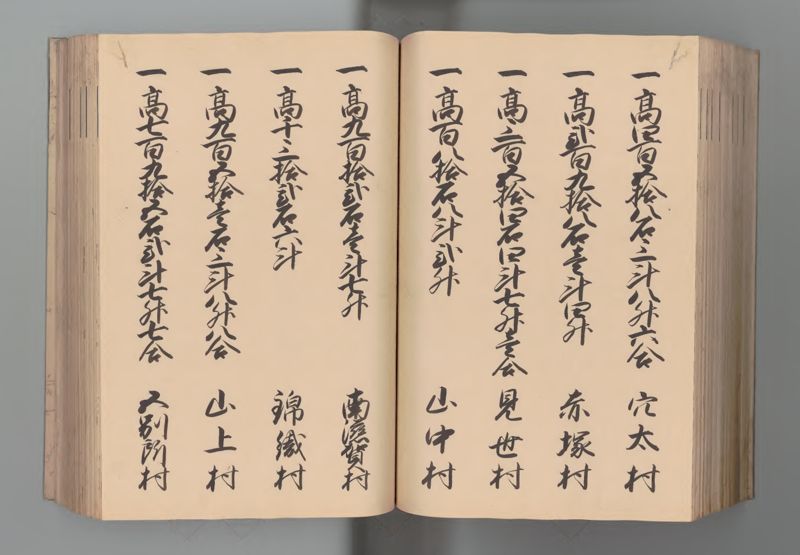 一 高四百五拾八石三斗八升六合 穴太村
一 高弐百九拾八石壱斗四升 赤塚村
一 高三百五拾四石四斗七升壱合 見世村
一 高百八拾石八斗弐升 山中村
一 高九百拾弐石壱斗七升 南滋賀村
一 高千三拾弐石六斗 錦織村
一 高九百五拾壱石三斗八升八合 山上村
一 高七百九拾五石弐斗七升七合 又別所村